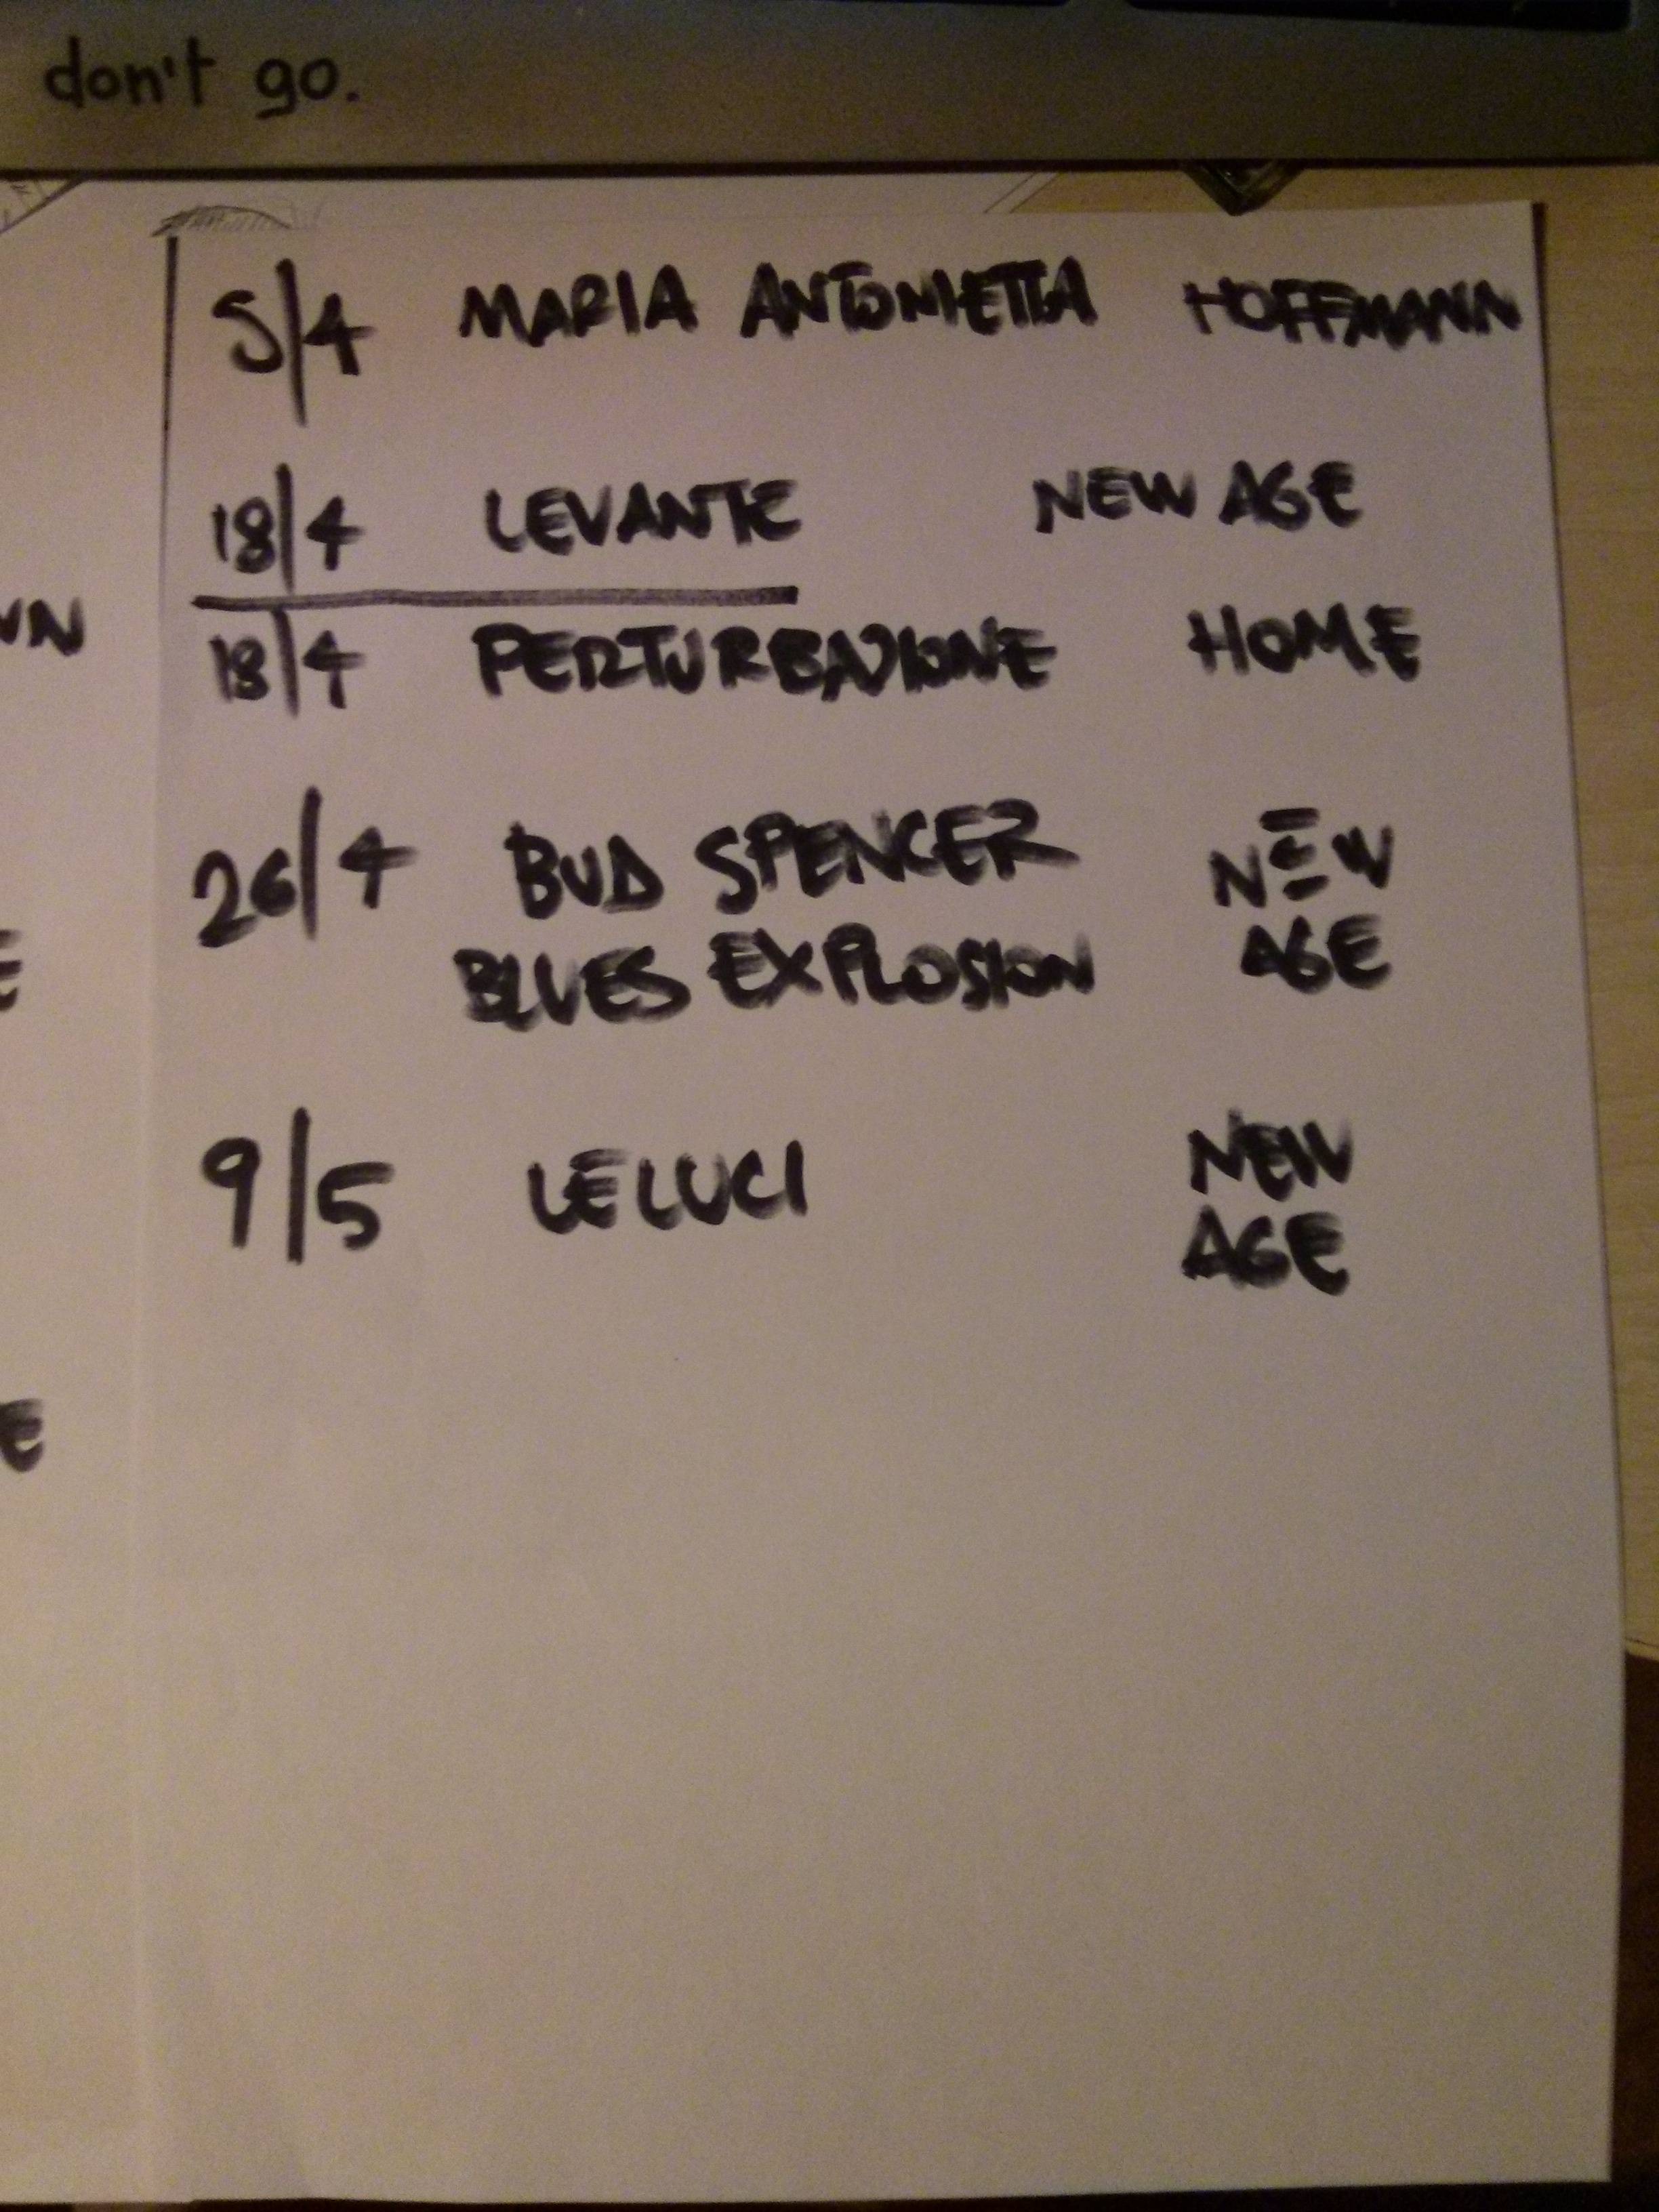 don't go.
5/4 MARIA ANTONIETTA HOFFMANN
18/4 LEVANTE NEW AGE
18/4 PERTURBAZIONE HOME
26/4 BUD SPENCER NEW
BLUES EXPLOSION AGE
9/5 LE LUCI NEW
AGE